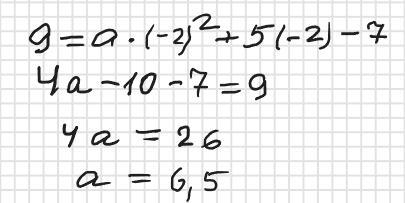 9 = a · (-2)² + 5(-2) - 7
4a - 10 - 7 = 9
4a = 26
a = 6,5